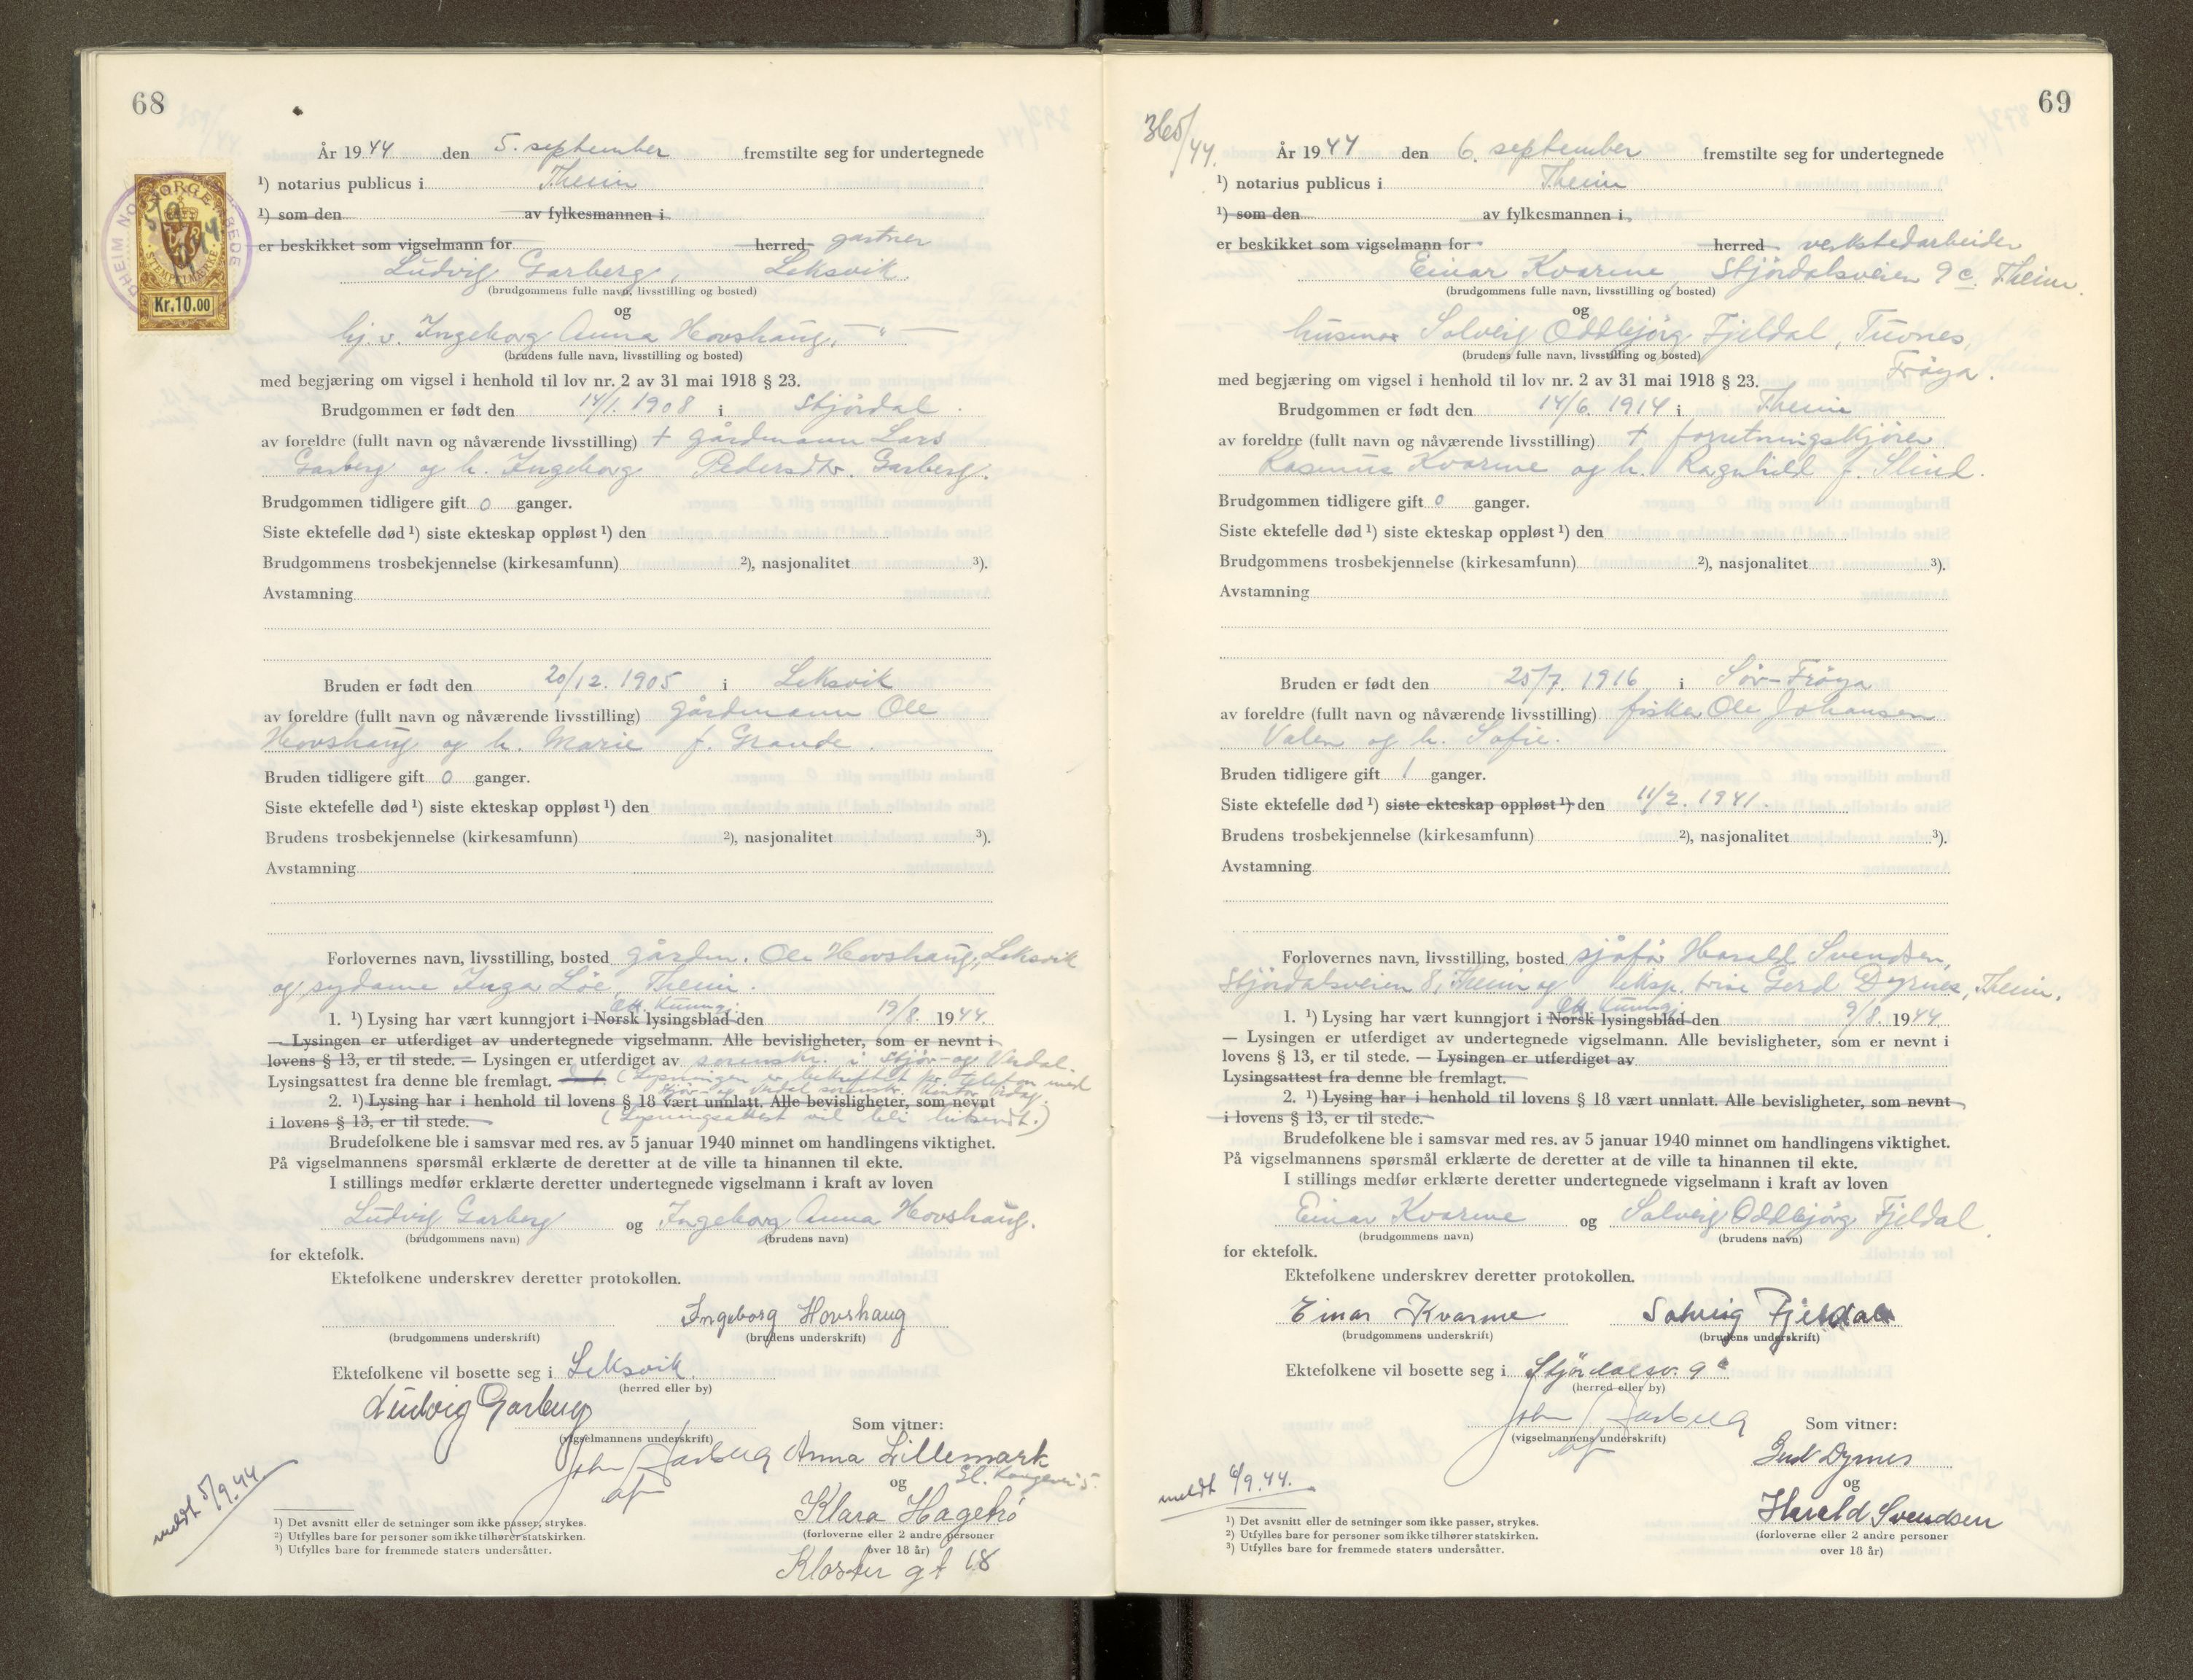 68
År 1944 den 5. september fremstilte seg for undertegnede
¹) notarius publicus i Theim
¹) som den av fylkesmannen i
er beskikket som vigselmann for herred gartner
Ludvig Garberg, Leksvik.
(brudgommens fulle navn, livsstilling og bosted)
og
hj. v. Ingeborg Anna Hovshaug, — " —
(brudens fulle navn, livsstilling og bosted)
med begjæring om vigsel i henhold til lov nr. 2 av 31 mai 1918 § 23.
Brudgommen er født den 14/1. 1908 i Stjördal.
av foreldre (fullt navn og nåværende livsstilling) + gårdmann Lars
Garberg og h. Ingeborg Pedersdtr. Garberg.
Brudgommen tidligere gift 0 ganger.
Siste ektefelle død ¹) siste ekteskap oppløst ¹) den
Brudgommens trosbekjennelse (kirkesamfunn) ²), nasjonalitet ³).
Avstamning
Bruden er født den 20/12. 1905 i Leksvik
av foreldre (fullt navn og nåværende livsstilling) gårdmann Ole
Hovshaug og h. Marie f. Grande.
Bruden tidligere gift 0 ganger.
Siste ektefelle død ¹) siste ekteskap oppløst ¹) den
Brudens trosbekjennelse (kirkesamfunn) ²), nasjonalitet ³).
Avstamning
Forlovernes navn, livsstilling, bosted gårdm. Ole Hovshaug, Leksvik
og sydame Inga Löe, Theim.
Off. Kunngj.
1. ¹) Lysing har vært kunngjort i Norsk lysingsblad den 19/8. 1944.
— Lysingen er utferdiget av undertegnede vigselmann. Alle bevisligheter, som er nevnt i
lovens § 13, er til stede. — Lysingen er utferdiget av sorenskr. i Stjör- og Verdal.
Lysingsattest fra denne ble fremlagt. (Lysningen er bekreftet pr. telefon med
Stjör- og Verdal sorenskr. kontor idag.
2. ¹) Lysing har i henhold til lovens § 18 vært unnlatt. Alle bevisligheter, som nevnt
i lovens § 13, er til stede. (Lysningsattest vil bli innsendt.)
Brudefolkene ble i samsvar med res. av 5 januar 1940 minnet om handlingens viktighet.
På vigselmannens spørsmål erklærte de deretter at de ville ta hinannen til ekte.
I stillings medfør erklærte deretter undertegnede vigselmann i kraft av loven
Ludvig Garberg og Ingeborg Anna Hovshaug.
(brudgommens navn) (brudens navn)
for ektefolk.
Ektefolkene underskrev deretter protokollen.
Ingeborg Hovshaug
(brudgommens underskrift) (brudens underskrift)
Ektefolkene vil bosette seg i Leksvik.
(herred eller by)
Ludvig Garberg
Som vitner:
(vigselmannens underskrift)
John Aarberg Anna Lillemark
og Gl. Kongevei 5.
Klara Hagebö
(forloverne eller 2 andre personer
over 18 år)
Kloster gt 18
meldt 5/9.44
¹) Det avsnitt eller de setninger som ikke passer, strykes.
²) Utfylles bare for personer som ikke tilhører statskirken.
³) Utfylles bare for fremmede staters undersåtter.
NORGE
STEMPELMERKE
Kr.10.00
69
365/44.
År 1944 den 6. september fremstilte seg for undertegnede
¹) notarius publicus i Theim
¹) som den av fylkesmannen i
er beskikket som vigselmann for herred verkstedarbeider
Einar Kvarme, Stjördalsveien 9 c. Theim.
(brudgommens fulle navn, livsstilling og bosted)
og
husmor Solveig Oddbjörg Fjeldal, Tuvnes,
(brudens fulle navn, livsstilling og bosted)
Fröya.
med begjæring om vigsel i henhold til lov nr. 2 av 31 mai 1918 § 23.
Brudgommen er født den 14/6. 1914 i Theim
av foreldre (fullt navn og nåværende livsstilling) + forretningskjörer
Rasmus Kvarme og h. Ragnhild f. Slind.
Brudgommen tidligere gift 0 ganger.
Siste ektefelle død ¹) siste ekteskap oppløst ¹) den
Brudgommens trosbekjennelse (kirkesamfunn) ²), nasjonalitet ³).
Avstamning
Bruden er født den 25/7. 1916 i Sör-Fröya
av foreldre (fullt navn og nåværende livsstilling) fisker Ole Johansen
Valen og h. Sofie.
Bruden tidligere gift 1 ganger.
Siste ektefelle død ¹) siste ekteskap oppløst ¹) den 11/2. 1941.
Brudens trosbekjennelse (kirkesamfunn) ²), nasjonalitet ³).
Avstamning
Forlovernes navn, livsstilling, bosted sjåför Harald Svendsen,
Stjördalsveien 8, Theim og eksp. trise Gerd Dyrnes, Theim.
Off. Kunngj.
1. ¹) Lysing har vært kunngjort i Norsk lysingsblad den 9/8. 1944.
— Lysingen er utferdiget av undertegnede vigselmann. Alle bevisligheter, som er nevnt i
lovens § 13, er til stede. — Lysingen er utferdiget av
Lysingsattest fra denne ble fremlagt.
2. ¹) Lysing har i henhold til lovens § 18 vært unnlatt. Alle bevisligheter, som nevnt
i lovens § 13, er til stede.
Brudefolkene ble i samsvar med res. av 5 januar 1940 minnet om handlingens viktighet.
På vigselmannens spørsmål erklærte de deretter at de ville ta hinannen til ekte.
I stillings medfør erklærte deretter undertegnede vigselmann i kraft av loven
Einar Kvarme og Solveig Oddbjörg Fjeldal.
(brudgommens navn) (brudens navn)
for ektefolk.
Ektefolkene underskrev deretter protokollen.
Einar Kvarme Solveig Fjeldal
(brudgommens underskrift) (brudens underskrift)
Ektefolkene vil bosette seg i Stjördalsv. 9 c
(herred eller by)
John Aarberg Som vitner:
(vigselmannens underskrift)
Gerd Dyrnes
og
Harald Svendsen
(forloverne eller 2 andre personer
over 18 år)
meldt 6/9.44.
¹) Det avsnitt eller de setninger som ikke passer, strykes.
²) Utfylles bare for personer som ikke tilhører statskirken.
³) Utfylles bare for fremmede staters undersåtter.